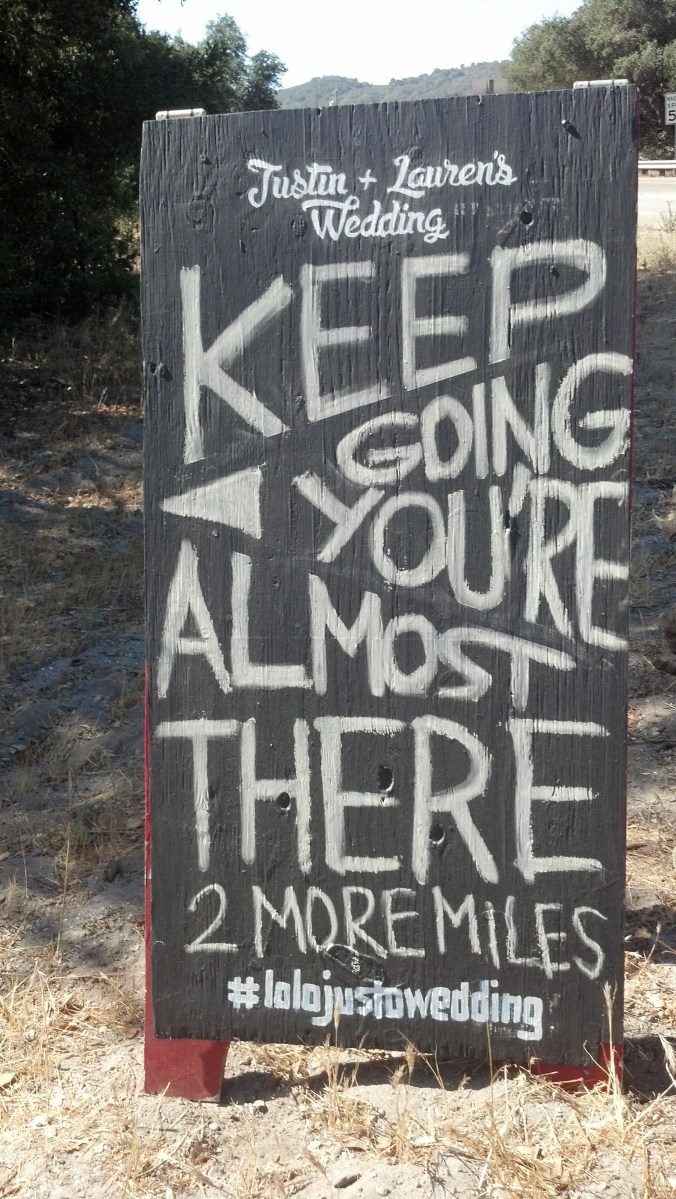 Justin + Lauren's
Wedding
KEEP
GOING
YOU'RE
ALMOST
THERE
2 MORE MILES
#lolojustowedding